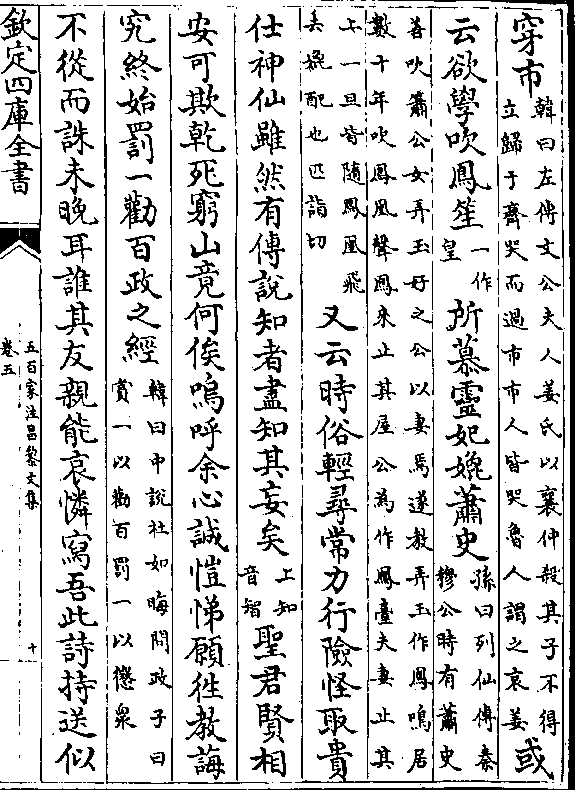 穿市韓曰左傳文公夫人姜氏以襄仲殺其子不得立歸于齊哭而過市市人皆哭魯人謂之哀姜或
云欲學吹鳳笙一作皇所慕靈妃媲蕭史孫曰列仙傳秦穆公時有蕭史
善吹簫公女弄玉好之公以妻焉遂教弄玉作鳳鳴居數十年吹鳳凰聲鳳來止其屋公為作鳳臺夫妻止其
上一旦皆随鳳凰飛去媲配也匹詣切又云時俗輕尋常力行險怪取貴
仕神仙雖然有傳說知者盡知其妄矣上知音智聖君賢相
安可欺乾死窮山竟何俟嗚呼余心誠愷悌願徃教誨
究終始罰一勸百政之經韓曰中說杜如晦問政子曰賞一以勸百罰一以懲衆
不從而誅未晚耳誰其友親能哀憐寫吾此詩持送似
欽定四庫全書
五百家注昌黎文集
卷五
十